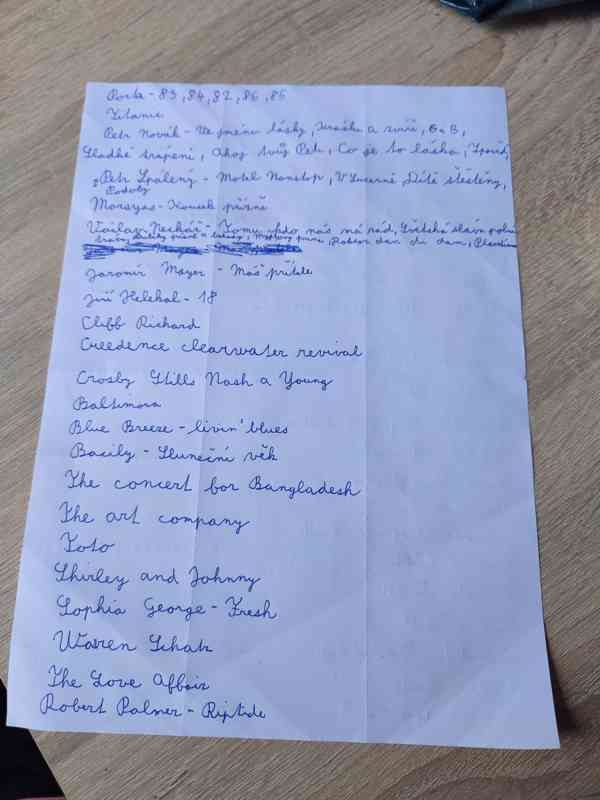 Porta - 83, 84, 82, 86, 85
Titanic
Petr Novák - Ve jménu lásky, Kráska a zvíře, G a B,
Sladké trápení, Ahoj tvůj Petr, Co je to láska, Zpověď,
Petr Spálený - Motel Nonstop, V Lucerně Dítě štěstěny,
Podoby
Marsyas - Kousek přízně
Václav Neckář - Tomu kdo nás má rád, Světská sláva polní
tráva, písně, Mýdlový princ, Robin dam di dam, Planetárium
Jaromír Mayer - Máš přítele
Jiří Helekal - 18
Cliff Richard
Creedence clearwater revival
Crosby Stills Nash a Young
Baltimora
Blue Breeze - livin' blues
Bacily - Sluneční věk
The concert for Bangladesh
The art company
Toto
Shirley and Johnny
Sophia George - Fresh
Waren Schatz
The Love Affair
Robert Palmer - Riptide